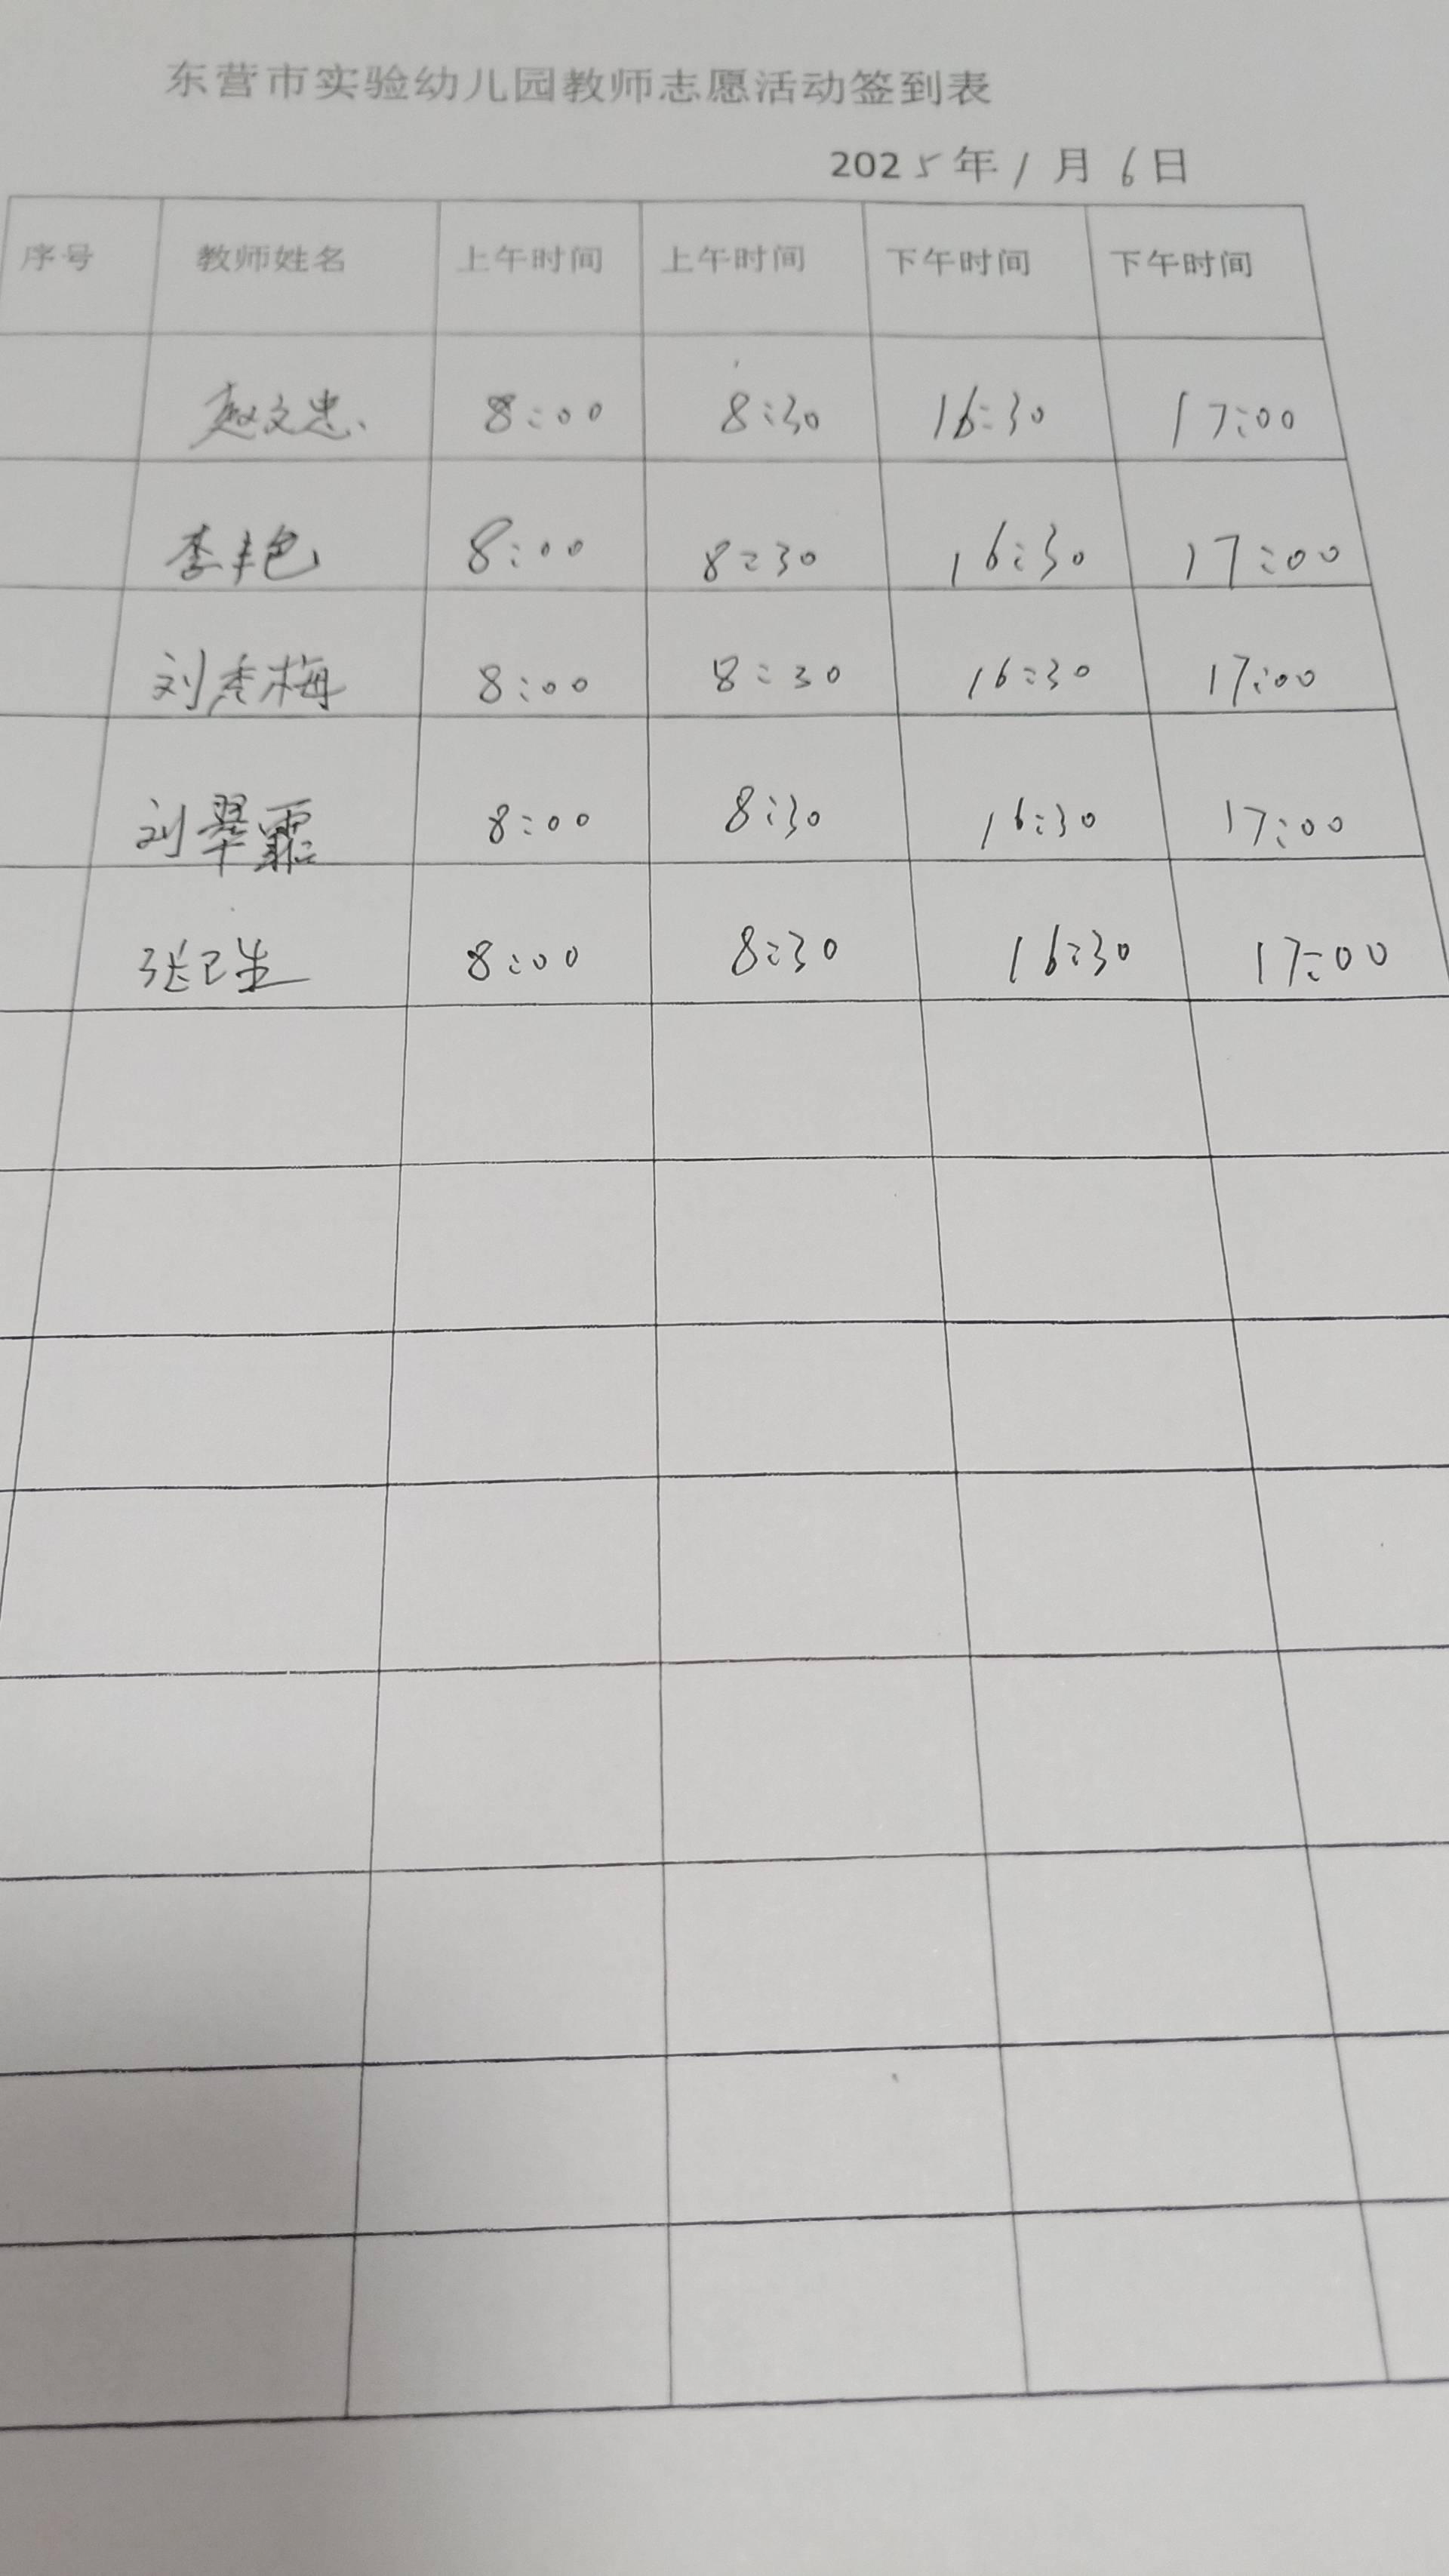 东营市实验幼儿园教师志愿活动签到表
2025年1月6日
序号 教师姓名 上午时间 上午时间 下午时间 下午时间
赵文忠 8:00 8:30 16:30 17:00
李 8:00 8:30 16:30 17:00
刘秀梅 8:00 8:30 16:30 17:00
刘翠霞 8:00 8:30 16:30 17:00
张卫生 8:00 8:30 16:30 17:00